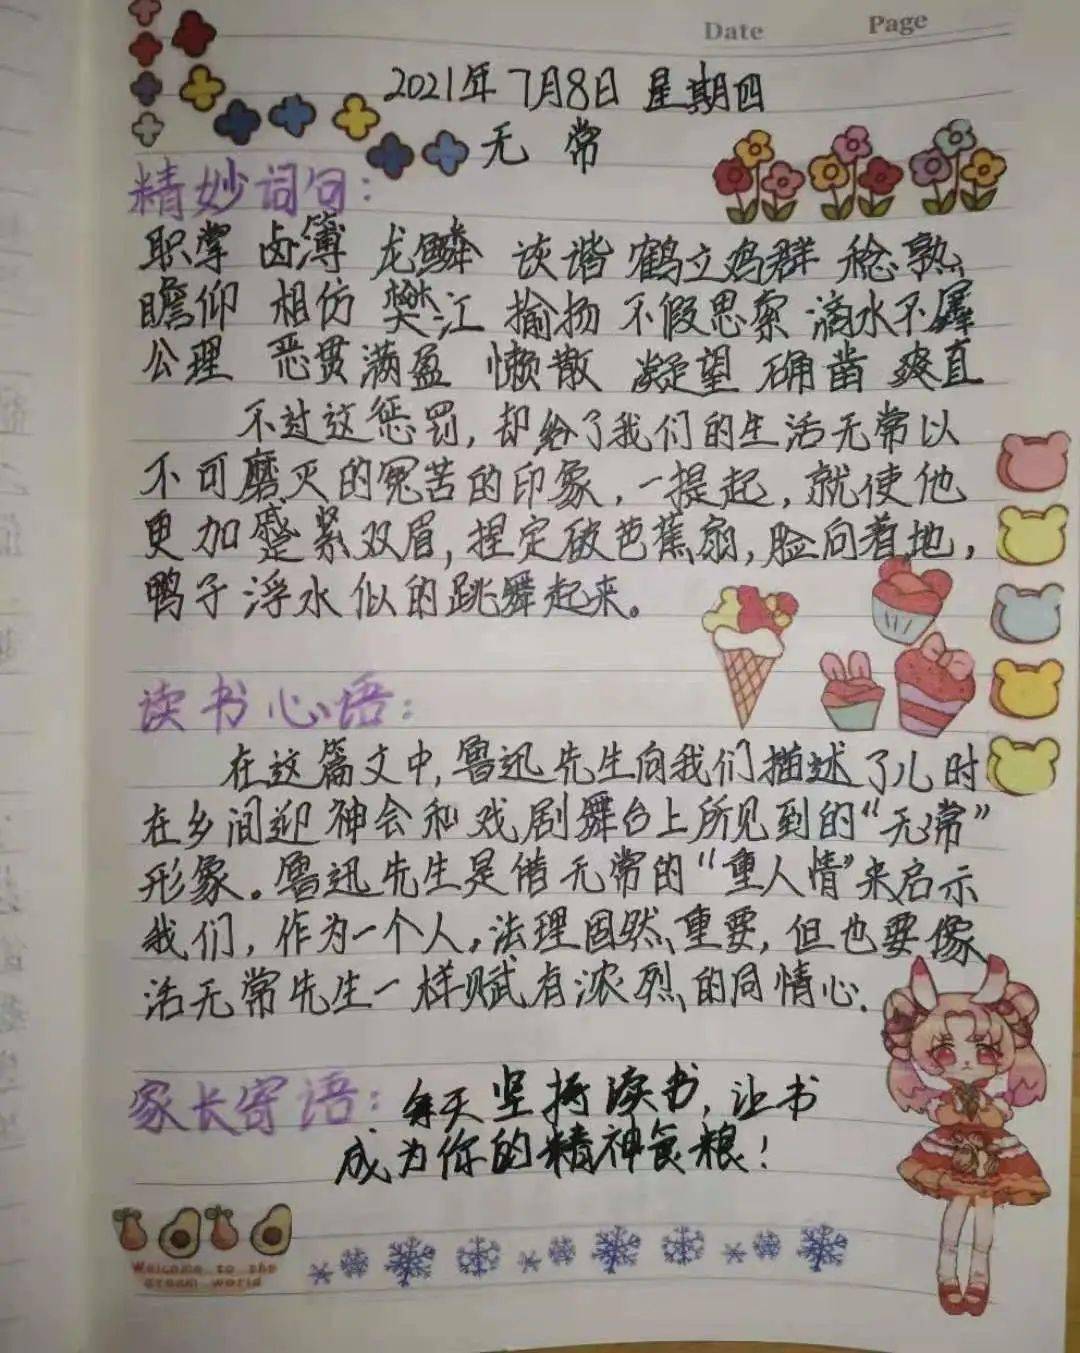 Date Page
2021年7月8日 星期四
无常
精妙词句:
职掌 卤簿 龙鳞 诙谐 鹤立鸡群 稔熟
瞻仰 相仿 樊江 揄扬 不假思索 滴水不羼
公理 恶贯满盈 懒散 凝望 确凿 爽直
不过这惩罚,却给了我们的生活无常以
不可磨灭的冤苦的印象,一提起,就使他
更加蹙紧双眉,捏定破芭蕉扇,脸向着地,
鸭子浮水似的跳舞起来。
读书心语:
在这篇文中,鲁迅先生向我们描述了儿时
在乡间迎神会和戏剧舞台上所见到的“无常”
形象。鲁迅先生是借无常的“重人情”来启示
我们,作为一个人。法理固然重要,但也要像
活无常先生一样赋有浓烈的同情心.
家长寄语:每天坚持读书,让书
成为你的精神食粮!
Welcome to the
dream world